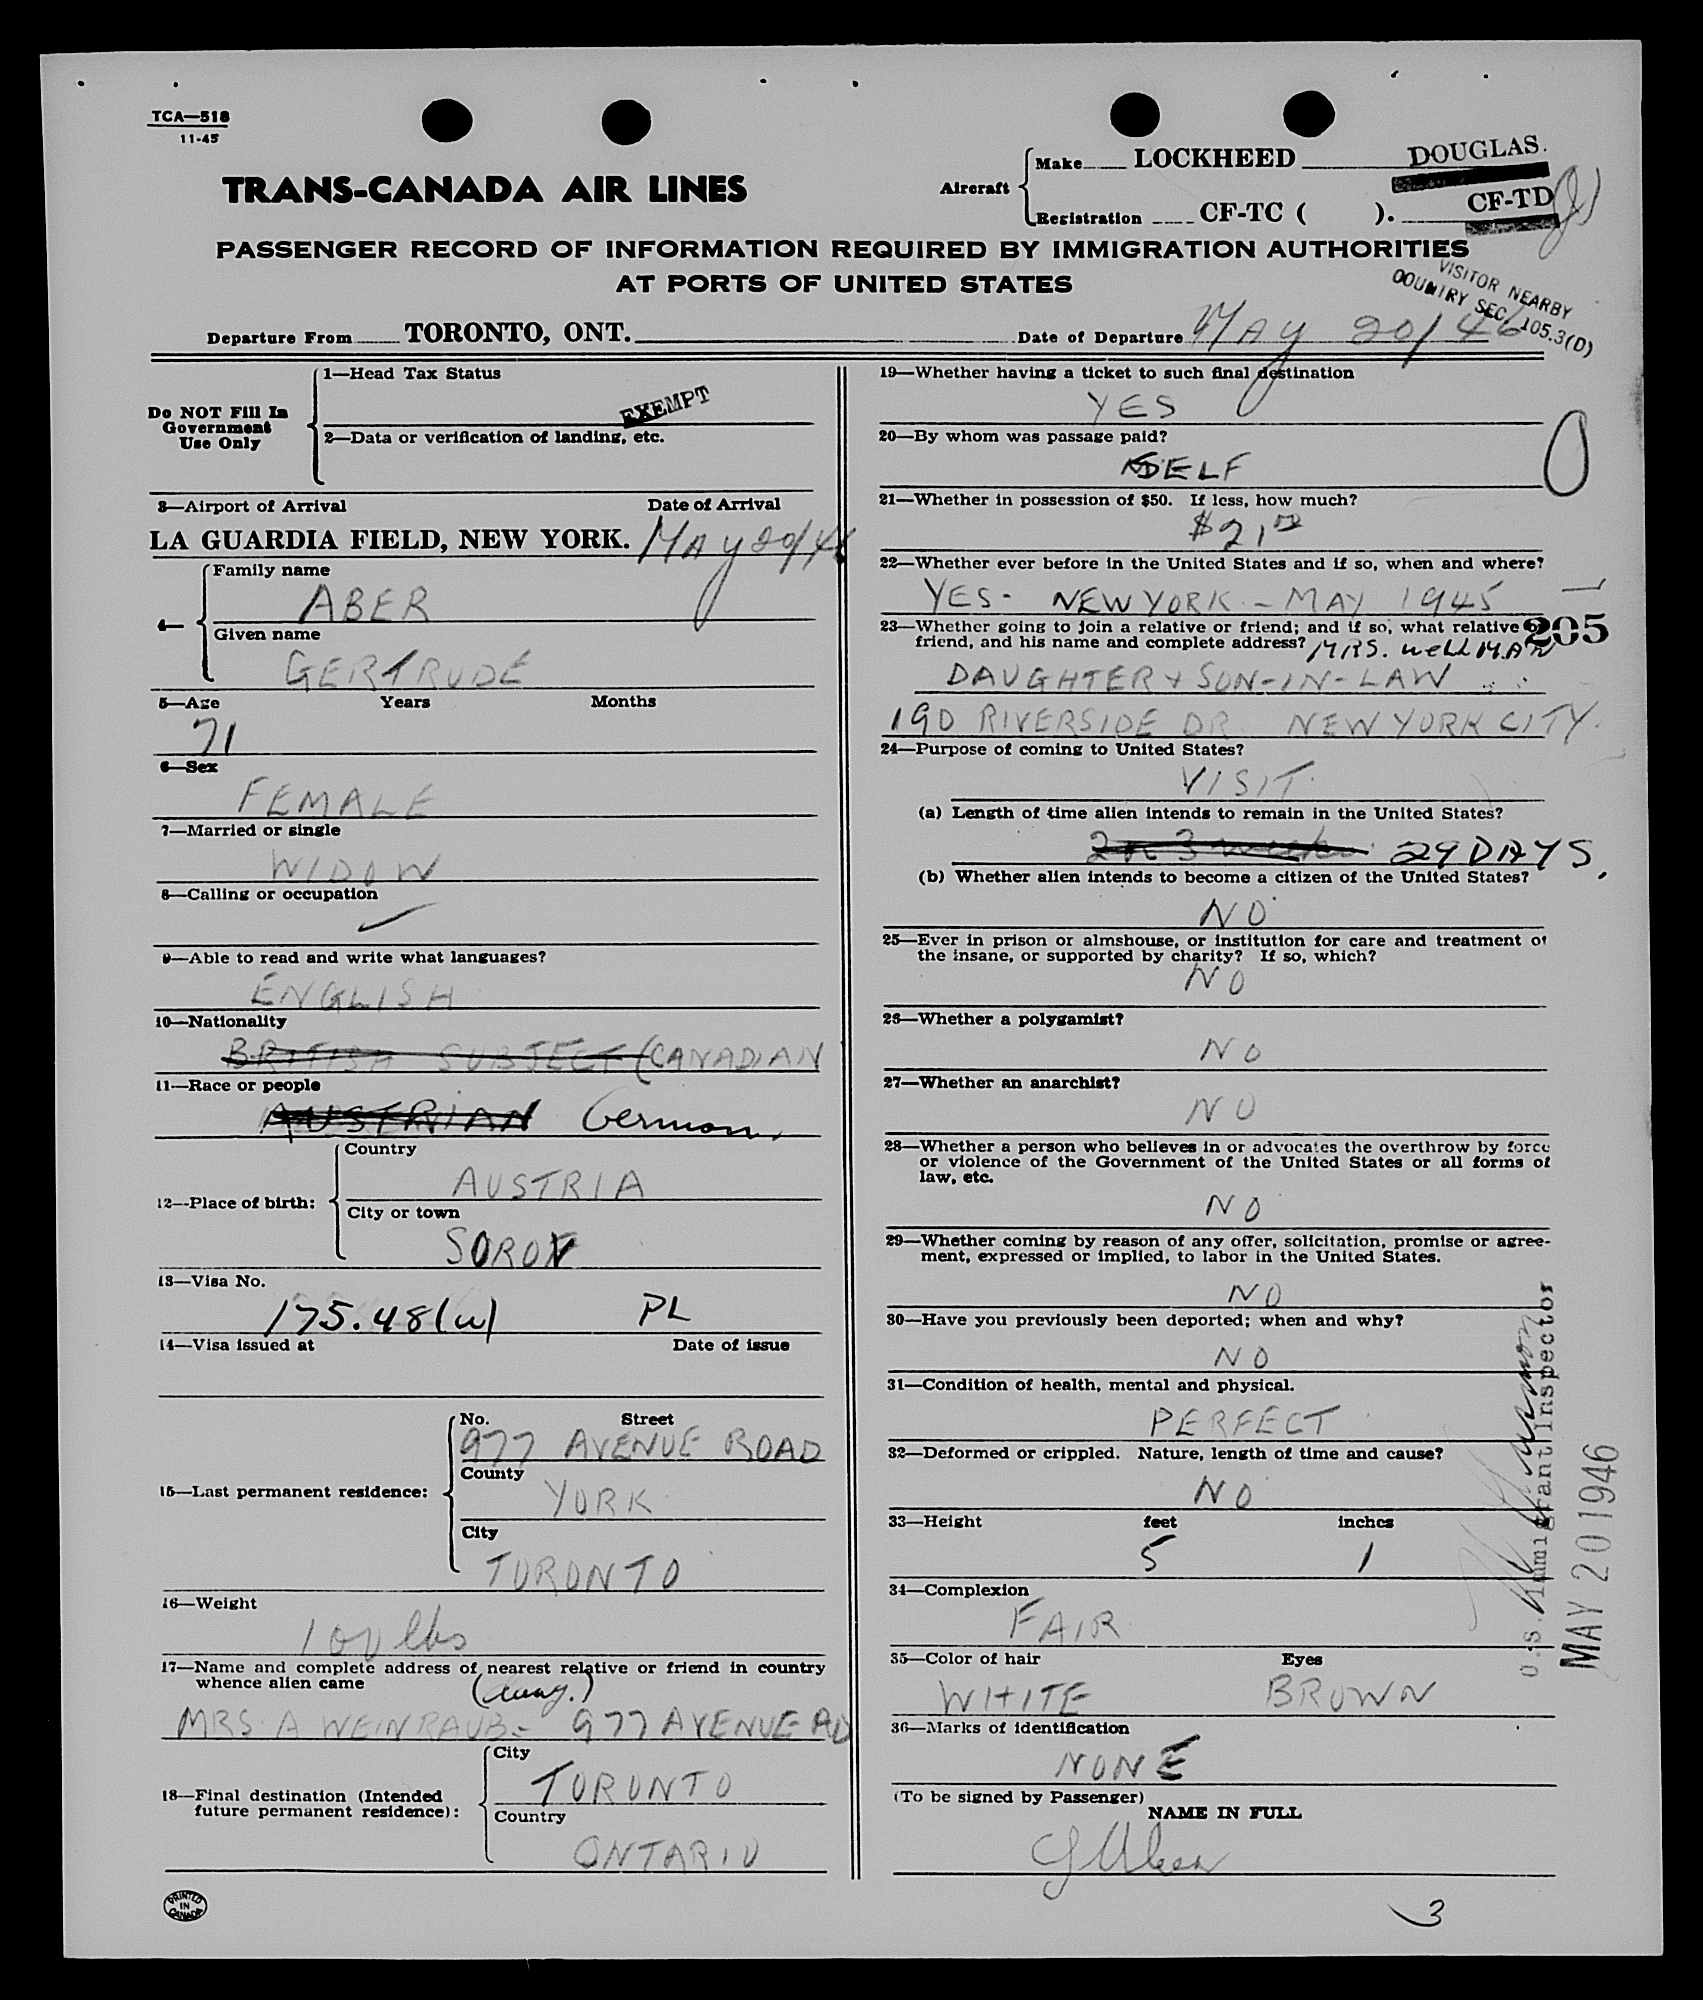 TCA—518
11-45
TRANS-CANADA AIR LINES
Aircraft
Make LOCKHEED DOUGLAS.
Registration CF-TC ( ). CF-TD
PASSENGER RECORD OF INFORMATION REQUIRED BY IMMIGRATION AUTHORITIES
AT PORTS OF UNITED STATES
VISITOR NEARBY
COUNTRY SEC. 105.3(D)
Departure From TORONTO, ONT. Date of Departure MAY 20/46
Do NOT Fill In
Government
Use Only
1—Head Tax Status
EXEMPT
2—Data or verification of landing, etc.
3—Airport of Arrival Date of Arrival
LA GUARDIA FIELD, NEW YORK. MAY 20/46
4—
Family name
ABER
Given name
GERTRUDE
5—Age Years Months
71
6—Sex
FEMALE
7—Married or single
WIDOW
8—Calling or occupation
9—Able to read and write what languages?
ENGLISH
10—Nationality
BRITISH SUBJECT (CANADIAN
11—Race or people
AUSTRIAN German.
12—Place of birth:
Country
AUSTRIA
City or town
13—Visa No.
175.48(w) PL
14—Visa issued at Date of issue
15—Last permanent residence:
No. Street
977 AVENUE ROAD
County
YORK
City
TORONTO
16—Weight
100 lbs
17—Name and complete address of nearest relative or friend in country
whence alien came
MRS. A WEINRAUB - 977 AVENUE RD
18—Final destination (Intended
future permanent residence):
City
TORONTO
Country
ONTARIO
PRINTED
IN
CANADA
19—Whether having a ticket to such final destination
YES
20—By whom was passage paid?
SELF
0
21—Whether in possession of $50. If less, how much?
22—Whether ever before in the United States and if so, when and where?
YES - NEW YORK - MAY 1945
23—Whether going to join a relative or friend; and if so, what relative or
205
friend, and his name and complete address? MRS. WELLMAN
DAUGHTER + SON-IN-LAW
190 RIVERSIDE DR NEW YORK CITY.
24—Purpose of coming to United States?
VISIT
(a) Length of time alien intends to remain in the United States?
29 DAYS.
(b) Whether alien intends to become a citizen of the United States?
NO
25—Ever in prison or almshouse, or institution for care and treatment of
the insane, or supported by charity? If so, which?
NO
26—Whether a polygamist?
NO
27—Whether an anarchist?
NO
28—Whether a person who believes in or advocates the overthrow by force
or violence of the Government of the United States or all forms of
law, etc.
NO
29—Whether coming by reason of any offer, solicitation, promise or agree-
ment, expressed or implied, to labor in the United States.
NO
30—Have you previously been deported; when and why?
NO
31—Condition of health, mental and physical.
PERFECT
32—Deformed or crippled. Nature, length of time and cause?
NO
33—Height feet inches
5 1
34—Complexion
FAIR
35—Color of hair Eyes
WHITE BROWN
36—Marks of identification
NONE
U.S. Immigrant Inspector
MAY 20 1946
(To be signed by Passenger)
NAME IN FULL
G Aber
3